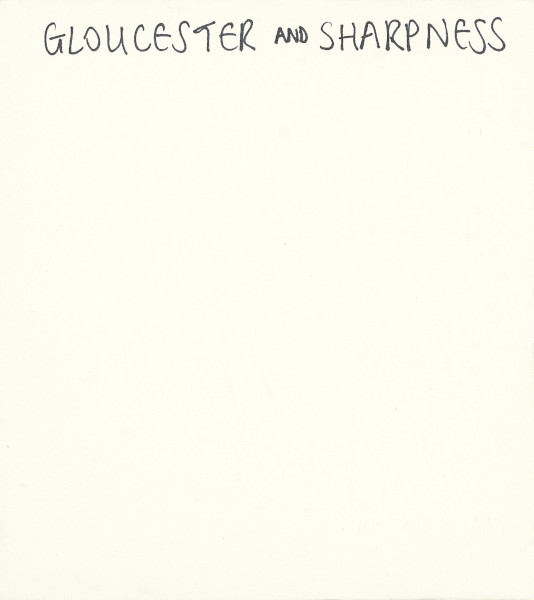 GLOUCESTER AND SHARPNESS